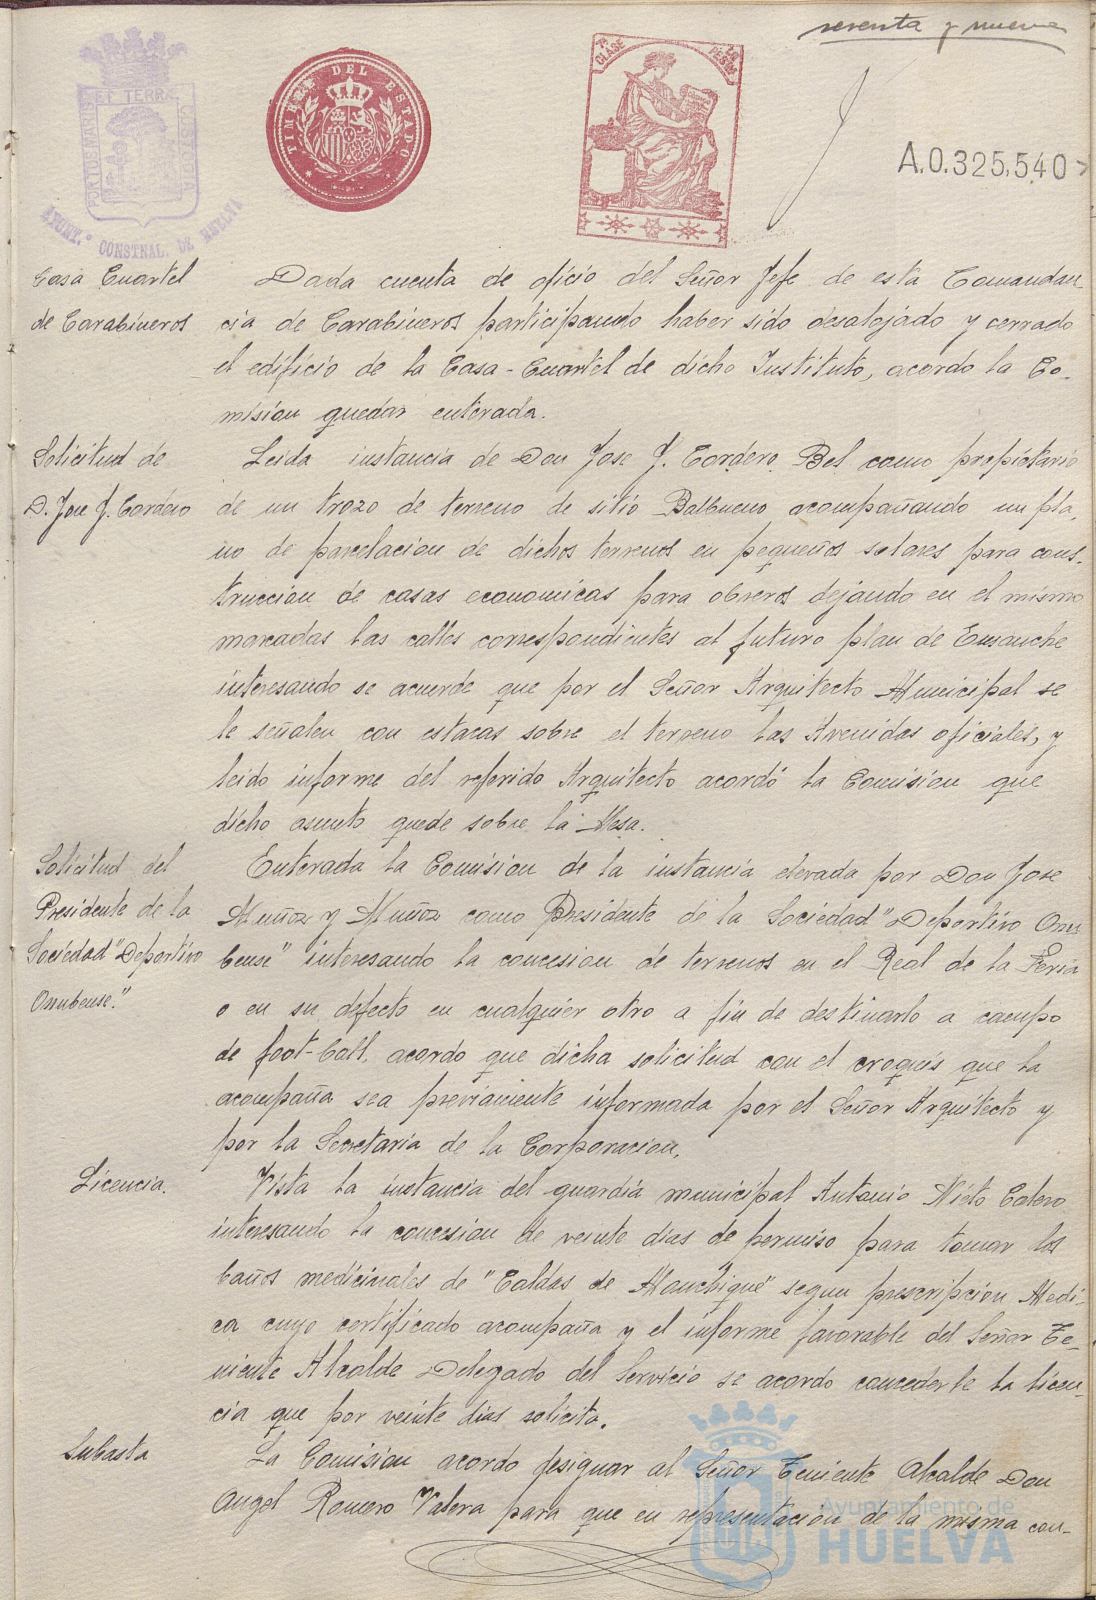 sesenta y nueve
PORTUS MARIS
ET TERRÆ
CUSTODIA
AYUNT.º CONSTNAL. DE HUELVA
TIMBRE DEL ESTADO
7ª CLASE
PESTS
A.0.325,540
Casa Cuartel
de Carabineros
Dada cuenta de oficio del Señor Jefe de esta Comandan-
cia de Carabineros participando haber sido desalojado y cerrado
el edificio de la Casa-Cuartel de dicho Instituto, acordo la Co-
mision quedar enterada.
Solicitud de
D. Jose J. Cordero
Leida instancia de Don Jose J. Cordero Bel como propietario
de un trozo de terreno de sitio Balbueno acompañando un pla-
no de parcelacion de dichos terrenos en pequeños solares para cons-
truccion de casas economicas para obreros dejando en el mismo
marcadas las calles correspondientes al futuro plan de Ensanche
interesando se acuerde que por el Señor Arquitecto Municipal se
le señalen con estacas sobre el terreno las Avenidas oficiales, y
leido informe del referido Arquitecto acordó la Comision que
dicho asunto quede sobre la Mesa.
Solicitud del
Presidente de la
Sociedad "Deportivo
Onubense."
Enterada la Comision de la instancia elevada por Don Jose
Muñoz y Muñoz como Presidente de la Sociedad "Deportivo Onu
bense" interesando la concesion de terrenos en el Real de la Feria
o en su defecto en cualquier otro a fin de destinarlo a campo
de foot-ball, acordo que dicha solicitud con el croquis que la
acompaña sea previamente informada por el Señor Arquitecto y
por la Secretaria de la Corporacion.
Licencia.
Vista la instancia del guardia municipal Antonio Nieto Calero
interesando la concesion de veinte dias de permiso para tomar los
baños medicinales de "Caldas de Monchique" segun prescripcion Medi-
ca cuyo certificado acompaña y el informe favorable del Señor Te-
niente Alcalde Delegado del Servicio se acordo concederle la licen-
cia que por veinte dias solicita.
Subasta
La Comision acordo designar al Señor Teniente Alcalde Don
Angel Romero Valera para que en representacion de la misma con-
Ayuntamiento de
HUELVA